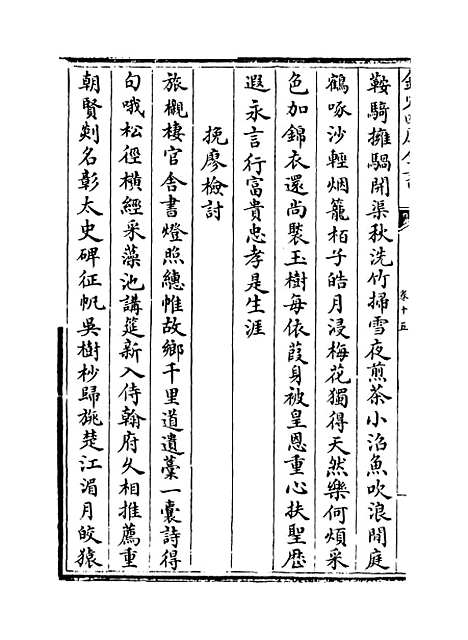 鞍騎擁騶開渠秋洗竹掃雪夜煎茶小沼魚吹浪閒庭
鶴啄沙輕烟籠栢子皓月浸梅花獨得天然樂何煩采
色加錦衣還尚褧玉樹每依葭身被皇恩重心扶聖歴
遐永言行富貴忠孝是生涯
挽廖檢討
旅櫬棲官舎書燈照繐帷故鄉千里道遺藁一囊詩得
句哦松徑横經采藻池講筵新入侍翰府乆相推薦重
朝賢剡名彰太史碑征帆吳樹杪歸旐楚江湄月皎猿
卷十五